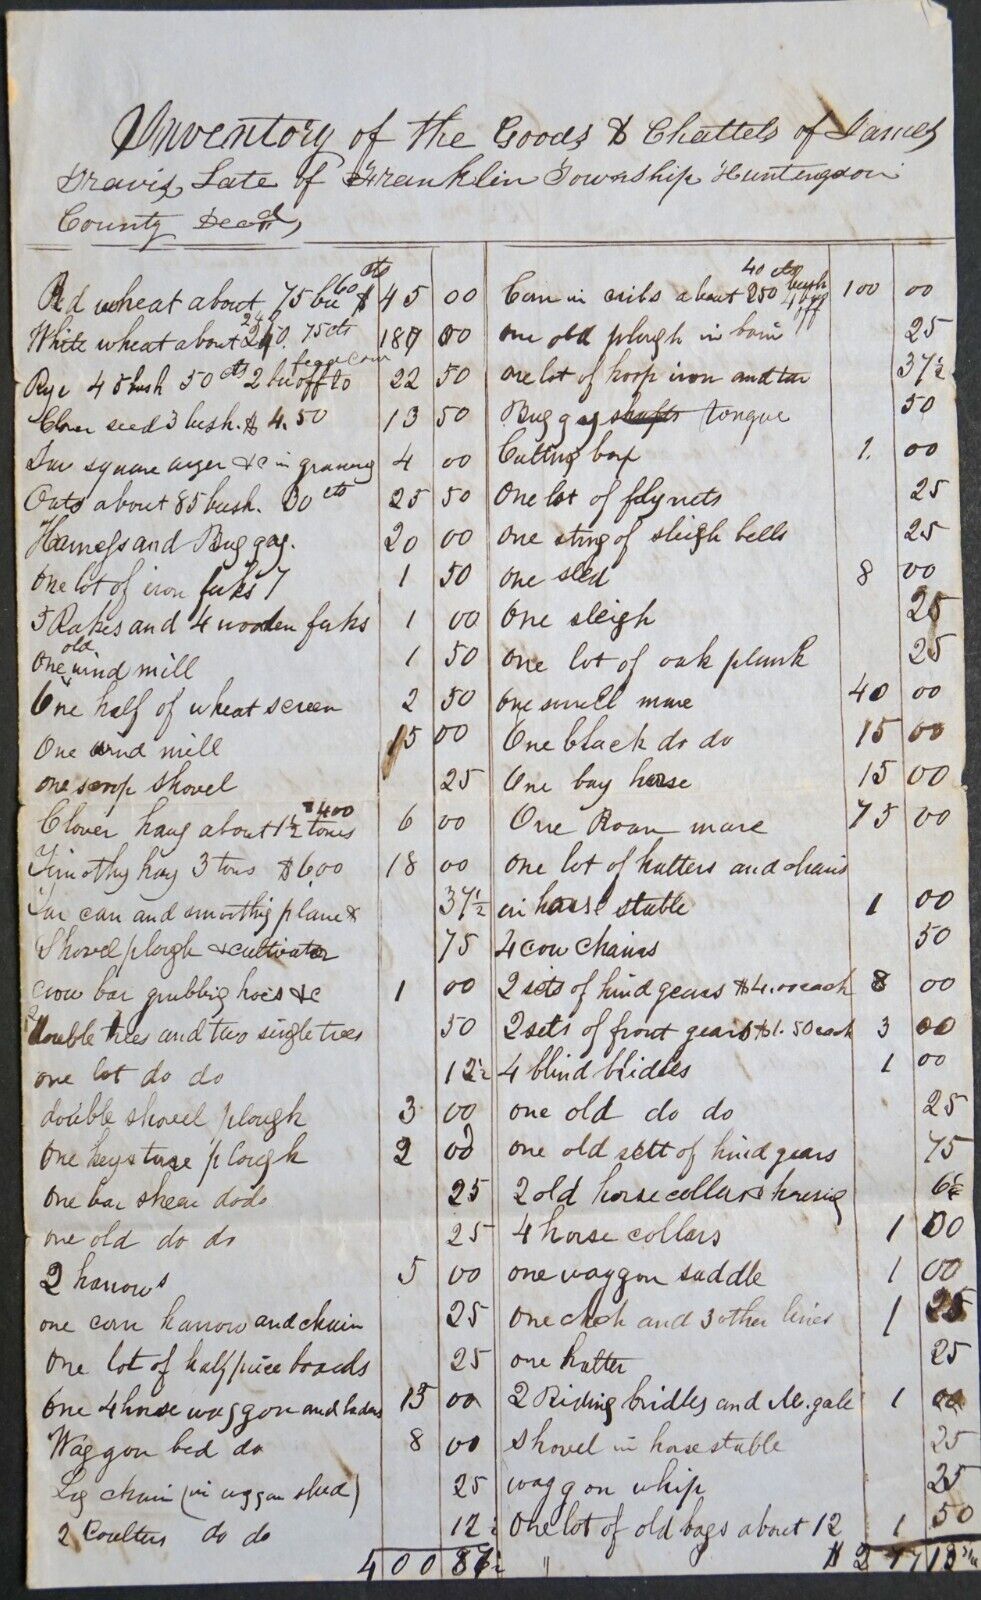 Inventory of the Goods & Chattels of James
Travis, Late of Franklin Township Huntingdon
County Decd,
Red wheat about 75 bu 60 cts $ 45 00
White wheat about 240. 75 cts 180 00
Rye 45 bush 50 cts 2 bu off to 22 50
Clover seed 3 bush. $ 4.50 13 50
square auger &c in granery 4 00
Oats about 85 bush. 30 cts 25 50
Harness and Buggag. 20 00
One lot of iron forks 7 1 50
5 Rakes and 4 wooden forks 1 00
One old wind mill 1 50
One half of wheat screen 2 50
One wind mill 15 00
one scoop shovel 25
Clover hay about 1½ tons $400 6 00
Timothy hay 3 tons $6.00 18 00
Tar can and smoothig plane & 37½
Shovel plough & cultivator 75
crow bar grubbig hoes &c 1 00
2 double trees and two single trees 50
one lot do do 12½
double shovel plough 3 00
One keystone plough 2 00
One bar shear dodo 25
one old do do 25
2 harrows 5 00
one corn harrow and chain 25
One lot of half price boards 25
One 4 horse waggon and ladars 15 00
Waggon bed do 8 00
Log chain (in waggon shed) 25
2 Coulters do do 12½
400 87½
Corn in cribs about 250 bush 40 cts 4 off 100 00
one old plough in barn 25
one lot of hoop iron and tar 37½
Buggag shafts tongue 50
Cutting box 1. 00
One lot of fly nets 25
One string of sleigh bells 25
one sled 8 00
One sleigh 25
One lot of oak plank 25
One sorrell mare 40 00
One black do do 15 00
One bay horse 15 00
One Roan mare 75 00
One lot of halters and chains
in horse stable 1 00
4 cow chains 50
2 sets of hind gears $4.00 each 8 00
2 sets of front gears $1.50 each 3 00
4 blind bridles 1 00
one old do do 25
one old sett of hind gears 75
2 old horse collars & housing
4 horse collars 1 00
one waggon saddle 1 00
One check and 3 other lines 1 25
one halter 25
2 Riding bridles and 1 00
Shovel in horse stable 25
waggon whip 25
One lot of old bags about 12 1 50
" $ 277